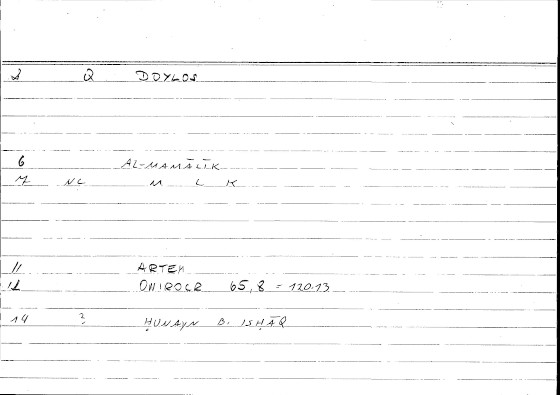 2 Q DOYLOS
6 AL-MAMĀLĪK
7 NC M L K
11 ARTEM
12 ONIROCR 65,8 = 120.13
14 ? ḤUNAYN B. ISḤĀQ